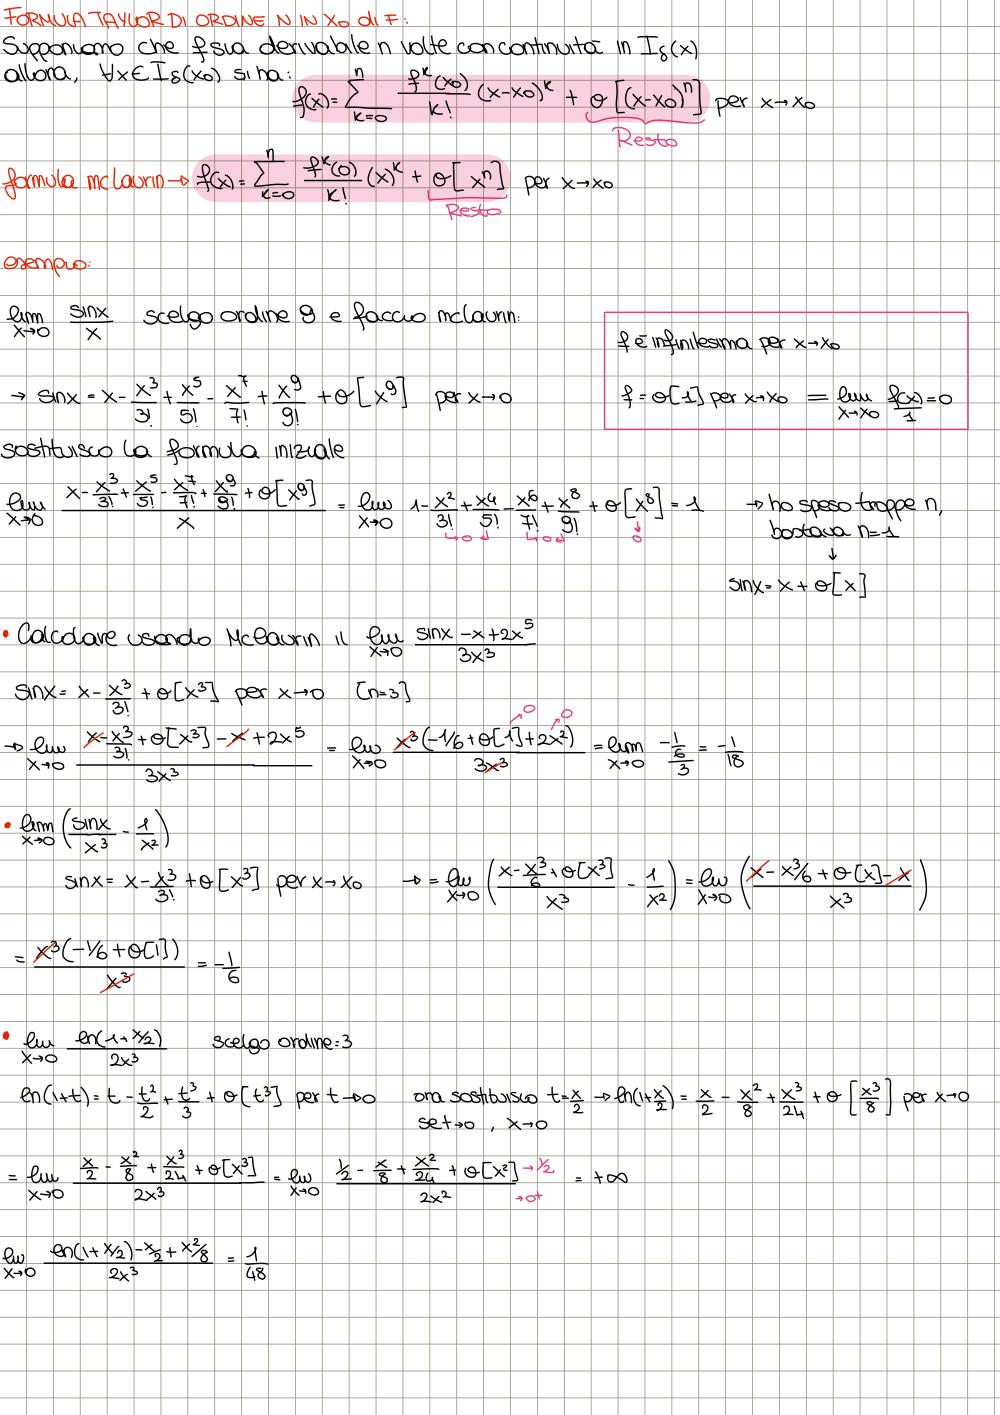 FORMULA TAYLOR DI ORDINE N IN X0 di F:
Supponiamo che f sia derivabile n volte con continuità in Iδ(x)
allora, ∀x∈Iδ(x0) si ha:
f(x) = ∑_{k=0}^{n} f^k(x0)/k! (x-x0)^k + o[(x-x0)^n] per x→x0
Resto
formula mclaurin → f(x) = ∑_{k=0}^{n} f^k(0)/k! (x)^k + o[x^n] per x→x0
Resto
esempio:
lim_{x→0} sinx/x scelgo ordine 9 e faccio mclaurin:
f è infinitesima per x→x0
f = o[1] per x→x0 = lim_{x→x0} f(x)/1 = 0
→ sinx = x - x^3/3! + x^5/5! - x^7/7! + x^9/9! + o[x^9] per x→0
sostituisco la formula iniziale
lim_{x→0} (x - x^3/3! + x^5/5! - x^7/7! + x^9/9! + o[x^9])/x = lim_{x→0} 1 - x^2/3! + x^4/5! - x^6/7! + x^8/9! + o[x^8] = 1 → ho speso troppe n,
→0 →0 ↓0 bastava n=1
↓
sinx = x + o[x]
• Calcolare usando McLaurin il lim_{x→0} (sinx - x + 2x^5)/3x^3
sinx = x - x^3/3! + o[x^3] per x→0 [n=3]
→ lim_{x→0} (x - x^3/3! + o[x^3] - x + 2x^5)/3x^3 = lim_{x→0} x^3(-1/6 + o[1] + 2x^2)/3x^3 = lim_{x→0} (-1/6)/3 = -1/18
→0 →0
• lim_{x→0} (sinx/x^3 - 1/x^2)
sinx = x - x^3/3! + o[x^3] per x→x0 → = lim_{x→0} ((x - x^3/6 + o[x^3])/x^3 - 1/x^2) = lim_{x→0} ((x - x^3/6 + o[x] - x)/x^3)
= x^3(-1/6 + o[1])/x^3 = -1/6
• lim_{x→0} ln(1+x/2)/2x^3 scelgo ordine: 3
ln(1+t) = t - t^2/2 + t^3/3 + o[t^3] per t→0 ora sostituisco t=x/2 → ln(1+x/2) = x/2 - x^2/8 + x^3/24 + o[x^3/8] per x→0
se t→0, x→0
= lim_{x→0} (x/2 - x^2/8 + x^3/24 + o[x^3])/2x^3 = lim_{x→0} (1/2 - x/8 + x^2/24 + o[x^2])/2x^2 →1/2 →0+ = +∞
lim_{x→0} (ln(1+x/2) - x/2 + x^2/8)/2x^3 = 1/48